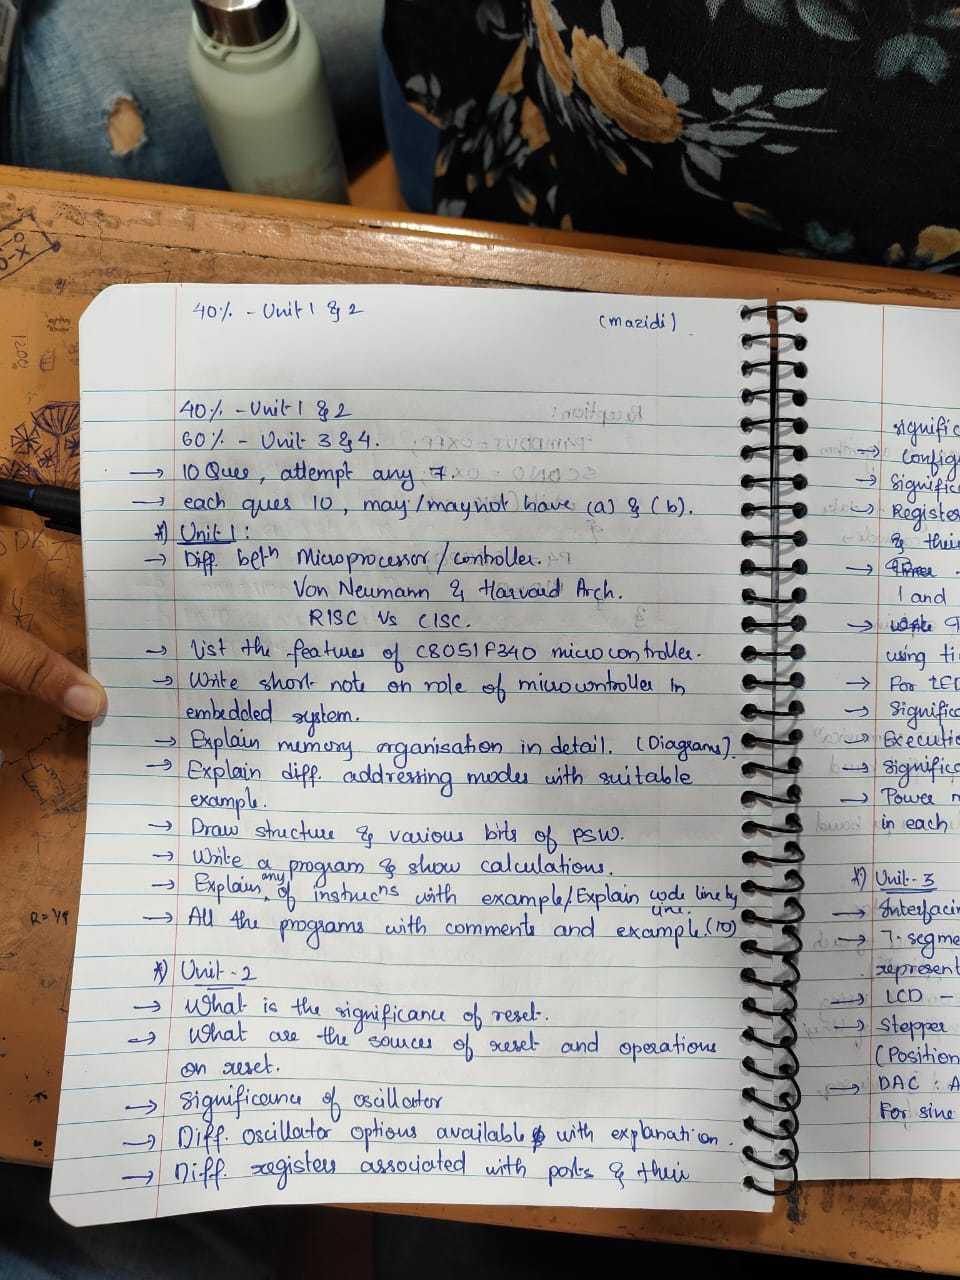 40% - Unit 1 & 2
(mazidi)
40% - Unit 1 & 2
60% - Unit 3 & 4.
→ 10 Ques, attempt any 7.
→ each ques 10, may/may not have (a) & (b).
*) Unit 1:
→ Diff. betn Microprocessor/controller.
Von Neumann & Harvard Arch.
RISC Vs CISC.
→ List the features of C8051F340 microcontroller.
→ Write short note on role of microcontroller in
embedded system.
→ Explain memory organisation in detail. (Diagrams).
→ Explain diff. addressing modes with suitable
example.
→ Draw structure & various bits of PSW.
→ Write a program & show calculations.
→ Explain any of instrucns with example/Explain code line by
line.
→ All the programs with comments and example. (10)
*) Unit-2
→ What is the significance of reset.
→ What are the sources of reset and operations
on reset.
→ Significance of oscillator
→ Diff. oscillator options available with explanation.
→ Diff. registers associated with ports & their
signific
→ Config
→ Signific
→ Register
& their
→
1 and
→
using ti
→ For LED
→ Significa
→ Executio
→ Significa
→ Power m
in each
*) Unit-3
→ Interfacin
→ 7-segme
represent
→ LCD -
→ Stepper
(Position
→ DAC : A
For sine
1200